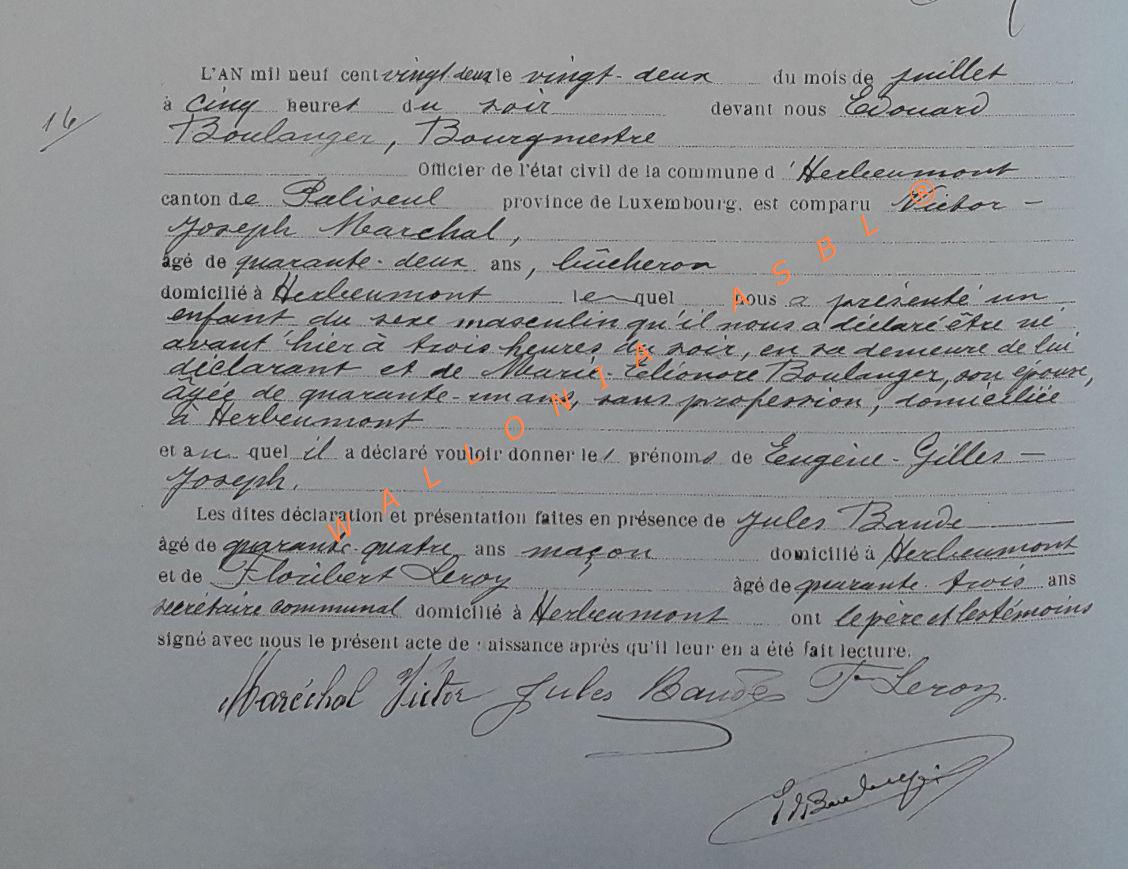 16/
L'AN mil neuf cent vingt-deux le vingt-deux du mois de juillet
à cinq heures du soir devant nous Edouard
Boulanger, Bourgmestre
Officier de l'état civil de la commune d'Herbeumont
canton de Paliseul province de Luxembourg, est comparu Victor-
Joseph Marchal,
âgé de quarante-deux ans, bûcheron
domicilié à Herbeumont lequel nous a présenté un
enfant du sexe masculin qu'il nous a déclaré être né
avant hier à trois heures du soir, en sa demeure de lui
déclarant et de Marie-Eléonore Boulanger, son épouse,
âgée de quarante-un ans, sans profession, domiciliée
à Herbeumont
et au quel il a déclaré vouloir donner les prénoms de Eugène-Gilles-
Joseph.
Les dites déclaration et présentation faites en présence de Jules Baude
âgé de quarante-quatre ans maçon domicilié à Herbeumont
et de Floribert Leroy âgé de quarante-trois ans
secrétaire communal domicilié à Herbeumont ont le père et les témoins
signé avec nous le présent acte de naissance après qu'il leur en a été fait lecture.
Maréchal Victor Jules Baudes F Leroy.
Ed Boulanger
WALLONIA ASBL ®